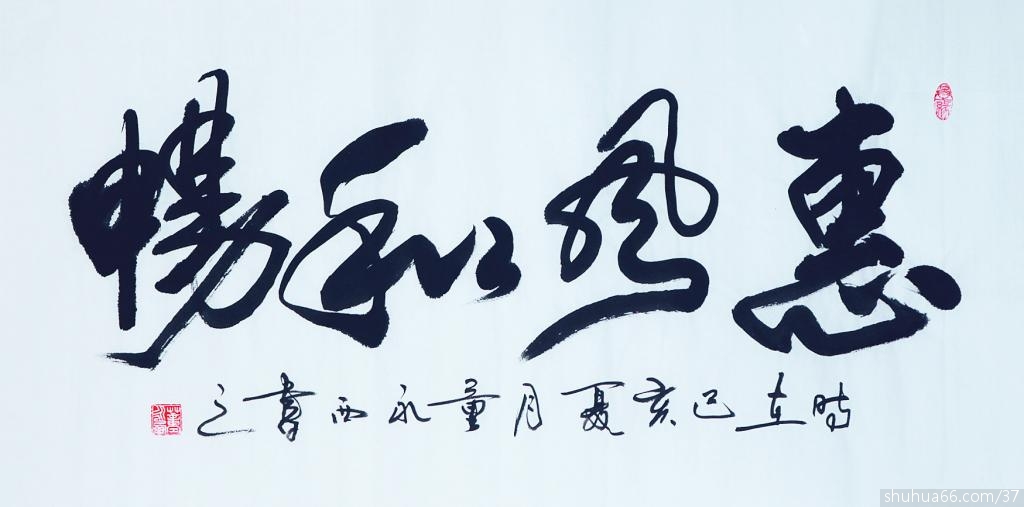 惠风和畅
时在己亥夏月董永西书之
shuhua66.com/37